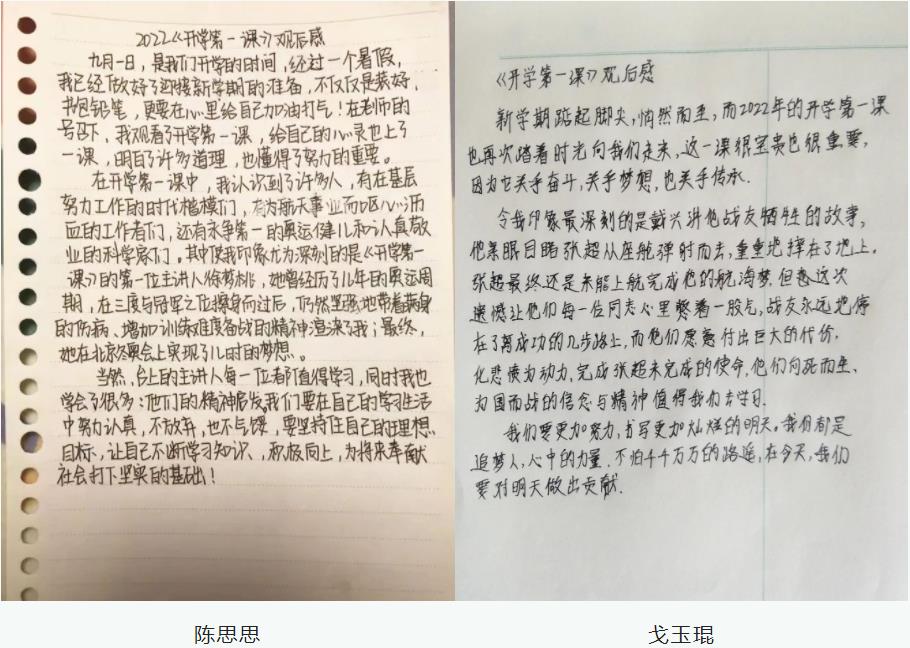 2022《开学第一课》观后感
九月一日，是我们开学的时间，经过一个暑假，
我已经做好了迎接新学期的准备，不仅仅是装好
书包铅笔，更要在心里给自己加油打气！在老师的
号召下，我观看了开学第一课，给自己的心灵也上了
一课，明白了许多道理，也懂得了努力的重要。
在开学第一课中，我认识到了许多人，有在基层
努力工作的时代楷模们，有为航天事业而呕心沥
血的工作者们，还有永争第一的奥运健儿和认真敬
业的科学家们。其中使我印象尤为深刻的是《开学第一
课》的第一位主讲人徐梦桃，她曾经历了几年的奥运周
期，在三度与冠军之位擦身而过后，仍然坚强地带着满身
的伤病、增加训练难度备战的精神渲染了我；最终，
她在北京冬奥会上实现了儿时的梦想。
当然，台上的主讲人每一位都值得学习，同时我也
学会了很多：他们的精神启发我们要在自己的学习生活
中努力认真，不放弃，也不气馁，要坚持住自己的理想
目标，让自己不断学习知识、积极向上，为将来奉献
社会打下坚实的基础！
陈思思
《开学第一课》观后感
新学期踮起脚尖，悄然而至，而2022年的开学第一课
也再次踏着时光向我们走来，这一课很宝贵也很重要，
因为它关乎奋斗，关乎梦想，也关乎传承.
令我印象最深刻的是戴兴讲他战友牺牲的故事，
他亲眼目睹张超从座舱弹射而去，重重地摔在了地上，
张超最终还是未能上舰完成他的航海梦.但是这次
遗憾让他们每一位同志心里憋着一股气，战友永远地停
在了离成功的几步路上，而他们愿意付出巨大的代价，
化悲愤为动力，完成张超未完成的使命，他们向死而生、
为国而战的信念与精神值得我们去学习.
我们要更加努力，书写更加灿烂的明天。我们都是
追梦人，心中的力量，不怕千千万万的路遥，在今天，我们
要对明天做出贡献.
戈玉琨